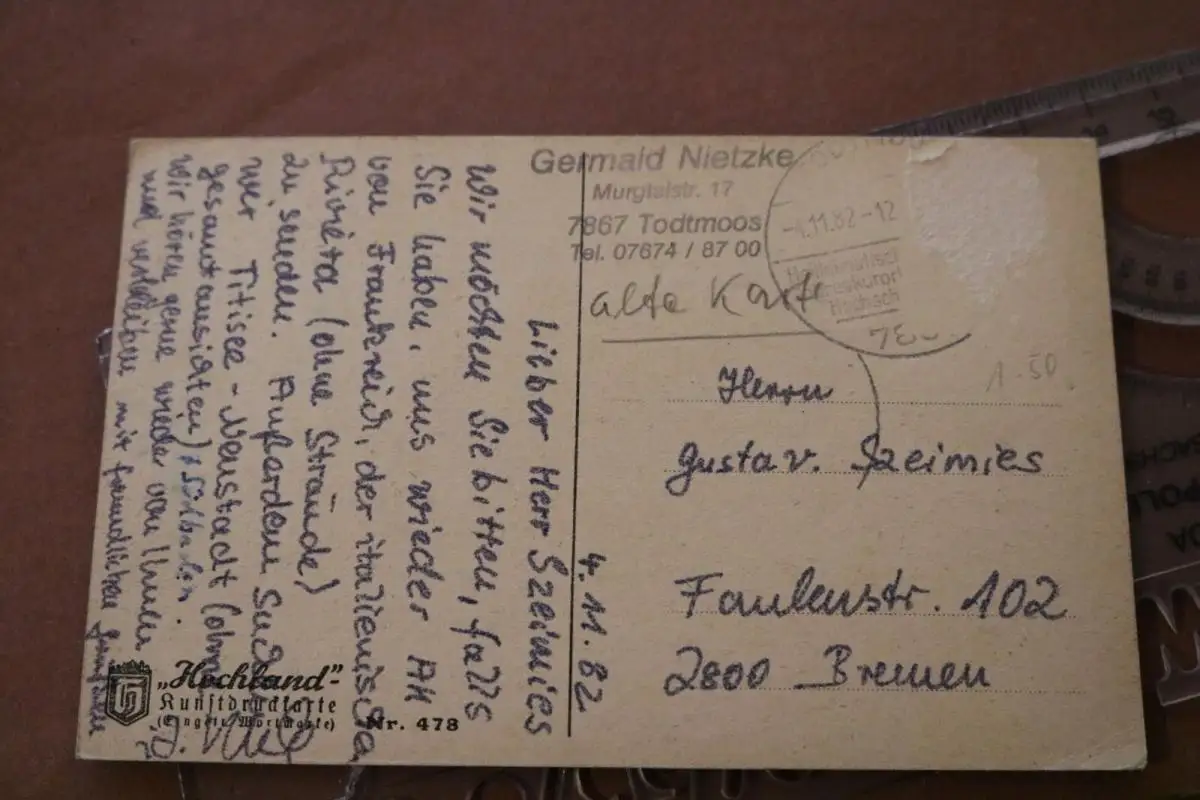 Germald Nietzke
Murgtalstr. 17
7867 Todtmoos
Tel. 07674 / 87 00
-4.11.82-12
alte Karte
1.50
Herrn
Gustav. Szeimies
Faulenstr. 102
2800 Bremen
4.11.82
Lieber Herr Szeimies
Wir möchten Sie bitten, falls
Sie haben, uns wieder AK
von Frankreich, der italienischen
Riviera (ohne Strände)
zu senden. Außerdem
wir Titisee-Neustadt (ohne
gesamtansichten) + Südbaden.
Wir hören gerne wieder von Ihnen
und verbleiben mit freundlichen
"Hochland"-
Kunstdruckkarte
(Énget. Wortmarke)
Nr. 478